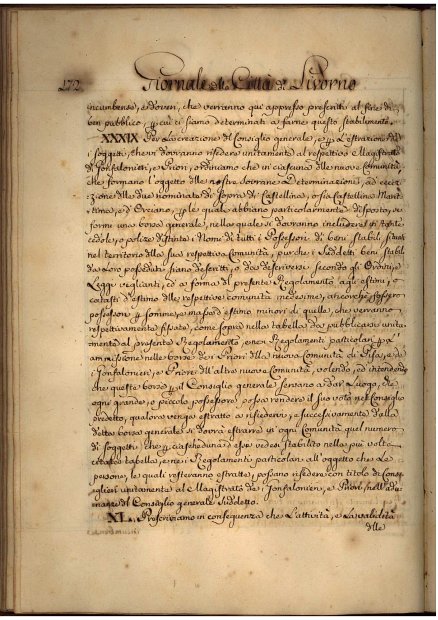 272 Giornale della Città di Livorno
incumbenze, e doveri, che verranno qui appresso prescritti al fine di
ben pubblico, per cui ci siamo determinati a farne questo stabilimento.
XXXIX Per la creazione del Consiglio generale, e per l'estrazione di
soggetti, che vi dovranno risedere unitamente al respettivo Magistrato
di Gonfalonieri, e Priori, ordiniamo che in ciascuna delle nuove Comunità,
che formano l'oggetto della nostra Sovrana Determinazione, ad ecce-
zione delle due nominate di sopra di Castellina, o sia Castellina Marit-
tima, e di Orciano, per le quali abbiamo particolarmente disposto, si
formi una borsa generale, nella quale si dovranno includere in tante
cedole, o polize distinte i Nomi di tutti i Possessori di beni stabili, situati
nel territorio della sua respettiva Comunità, purché i suddetti beni stabili
da Loro posseduti siano descritti, o da descriversi secondo gli Ordini, e
Leggi veglianti, ed a forma del presente Regolamento agli estimi, o
catasti d'estimo delle respettive comunità medesime, ancorché fossero
possessori per somme, e massa d'estimo minori di quelle, che verranno
respettivamente fissate, come sopra nella tabella da pubblicarsi unita-
mente al presente Regolamento, e nei Regolamenti particolari per l'
ammissione nelle borse dei Priori della nuova Comunità di Pisa, e dei
Gonfalonieri, e Priori dell'altre nuove Comunità, volendo, ed intendendo
che queste borse per il Consiglio generale servano a dar Luogo, che
ogni grande, o piccolo possessore possa rendere il suo voto nel Consiglio
predetto, qualora venga estratto a risedervi, e successivamente dalla
detta borsa generale si dovrà estrarre in ogni Comunità quel numero
di soggetti, che per ciascheduna d'esse vedesi stabilito nella più volte
citata tabella, e nei Regolamenti particolari all'oggetto che Le
persone, le quali resteranno estratte, possano risedere con titolo di Consi-
glieri unitamente al Magistrato dei Gonfalonieri, e Priori, nelle adu-
nanze del Consiglio generale suddetto.
XL. Prescriviamo in conseguenza che L'attività, e La validità
delle